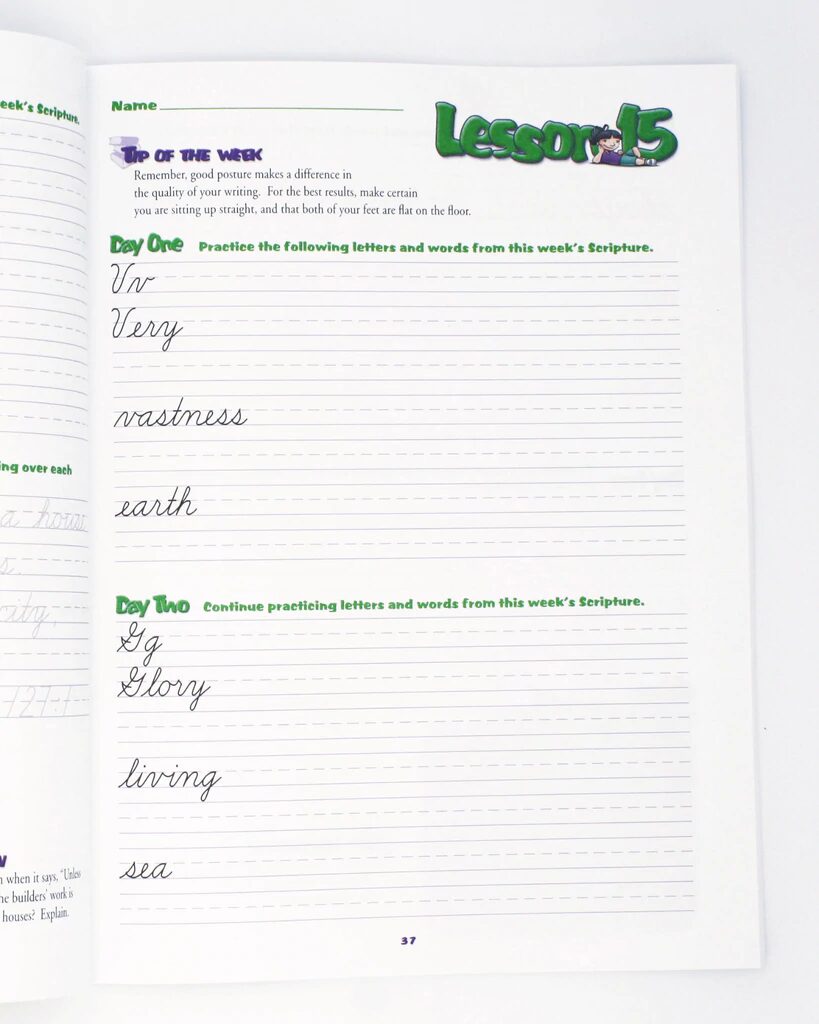 eek's Scripture.
ing over each
a
s.
127:1
n when it says, "Unless
he builders' work is
houses? Explain.
Name
Lesson 15
Tip of the Week
Remember, good posture makes a difference in
the quality of your writing. For the best results, make certain
you are sitting up straight, and that both of your feet are flat on the floor.
Day One Practice the following letters and words from this week's Scripture.
Vv
Very
vastness
earth
Day Two Continue practicing letters and words from this week's Scripture.
Gg
Glory
living
sea
37